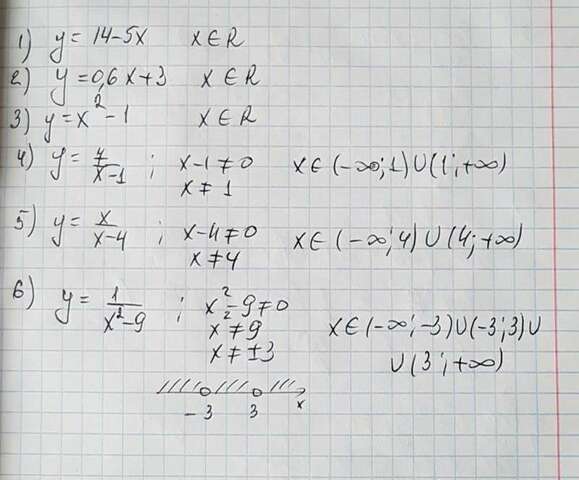 1) y = 14-5x x ∈ R
2) y = 0,6x+3 x ∈ R
3) y = x² - 1 x ∈ R
4) y = 7/(x-1) ; x-1 ≠ 0 x ∈ (-∞; 1) ∪ (1; +∞)
x ≠ 1
5) y = x/(x-4) ; x-4 ≠ 0 x ∈ (-∞; 4) ∪ (4; +∞)
x ≠ 4
6) y = 1/(x²-9) ; x²-9 ≠ 0
x² ≠ 9 x ∈ (-∞; -3) ∪ (-3; 3) ∪
x ≠ ±3 ∪ (3; +∞)
-3 3 x